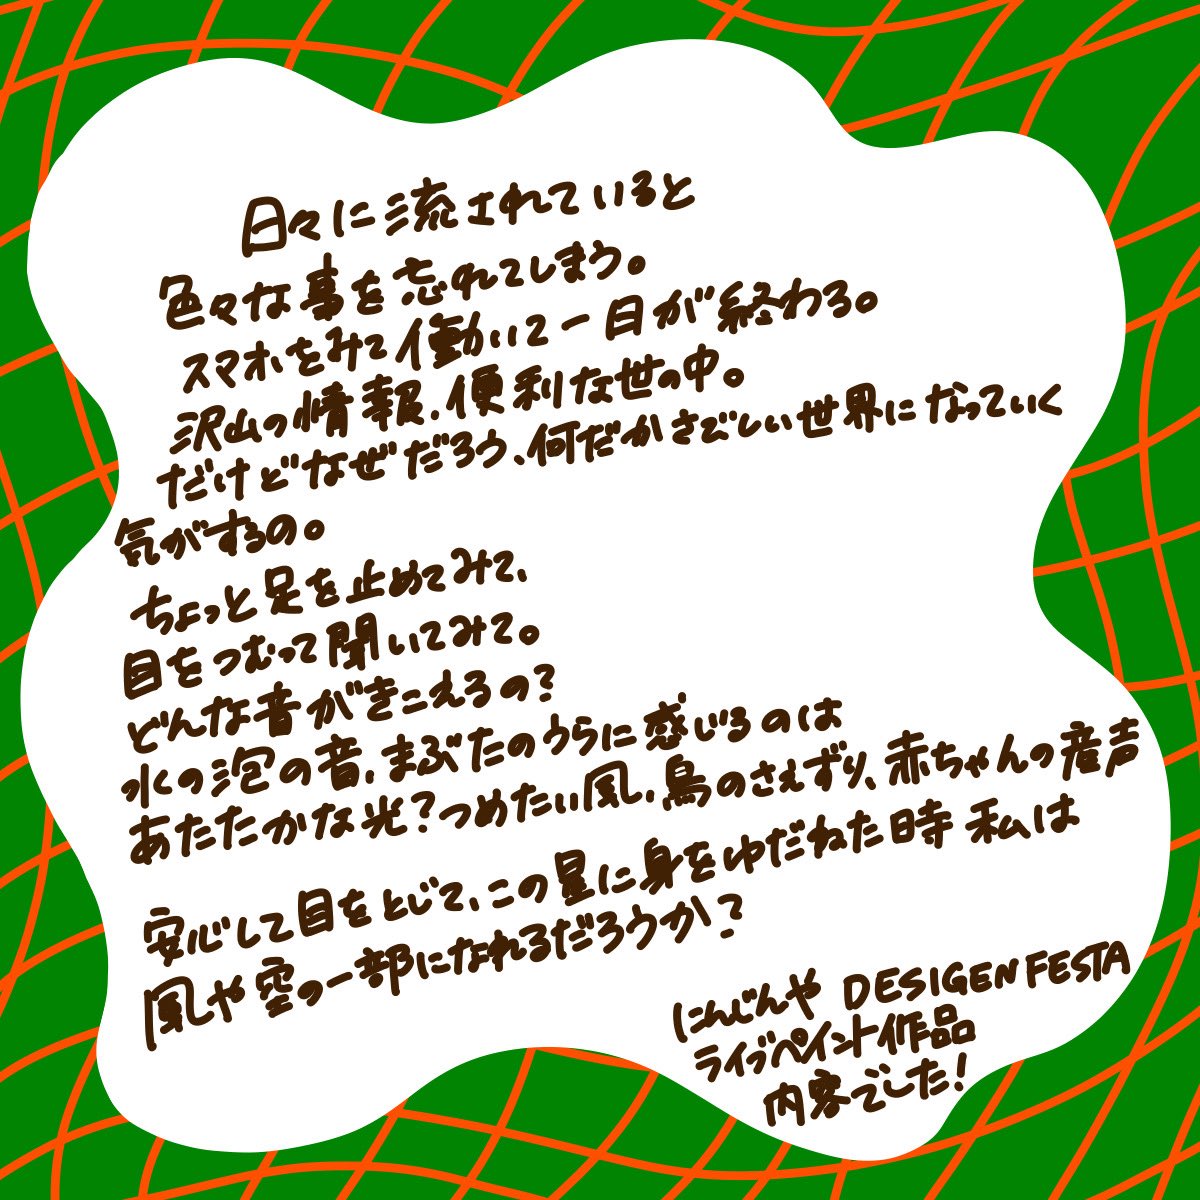 日々に流されていると
色々な事を忘れてしまう。
スマホをみて働いて一日が終わる。
沢山の情報、便利な世の中。
だけどなぜだろう、何だかさびしい世界になっていく
気がするの。
ちょっと足を止めてみて、
目をつむって聞いてみて。
どんな音がきこえるの?
水の泡の音、まぶたのうらに感じるのは
あたたかな光?つめたい風、鳥のさえずり、赤ちゃんの産声
安心して目をとじて、この星に身をゆだねた時 私は
風や空の一部になれるだろうか?
にんじんや DESIGEN FESTA
ライブペイント作品
内容でした!